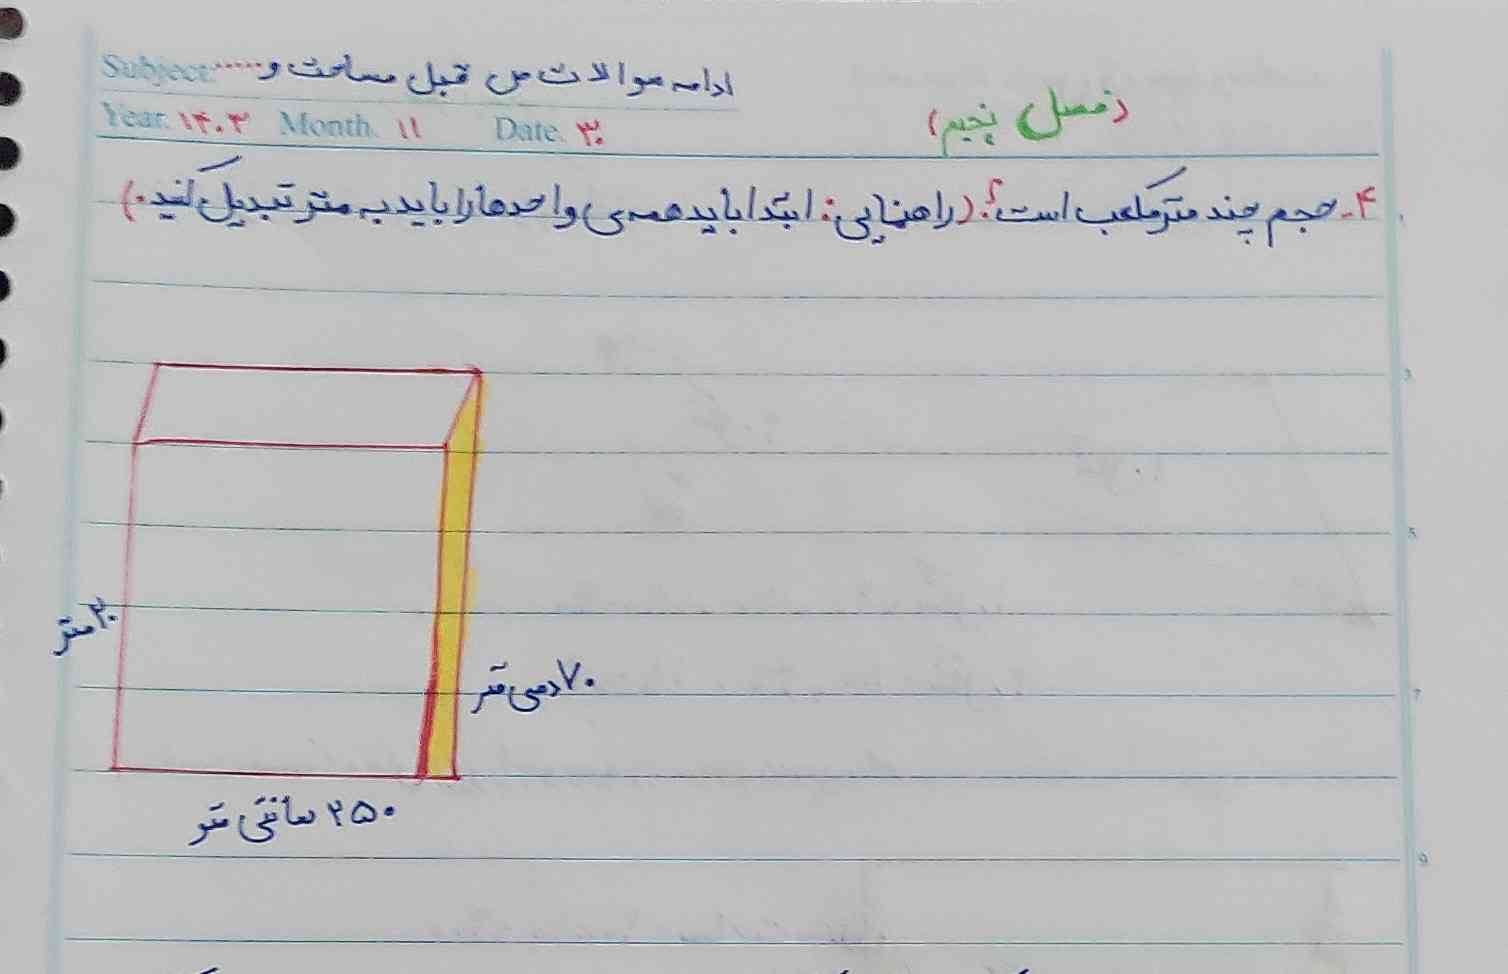 Subject: ادامه سوالات ص قبل مساحت و......
Year. ۱۴۰۳ Month. ۱۱ Date. ۳۰
(فصل پنجم)
۴- حجم چند مترمکعب است؟ (راهنمایی: ابتدا باید همه‌ی واحدها را باید به متر تبدیل کنید.)
3
5
۲۰ متر
۷۰ دسی متر
7
۲۵۰ سانتی متر
9